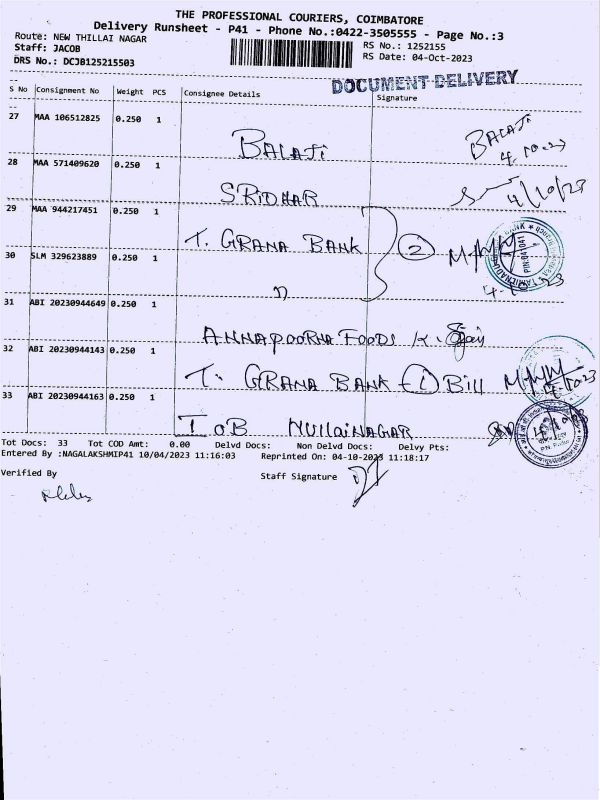 THE PROFESSIONAL COURIERS, COIMBATORE
Delivery Runsheet - P41 - Phone No.:0422-3505555 - Page No.:3
Route: NEW THILLAI NAGAR
Staff: JACOB
DRS No.: DCJB125215503
RS No.: 1252155
RS Date: 04-Oct-2023
DOCUMENT DELIVERY
S No Consignment No Weight PCS Consignee Details Signature
27 MAA 106512825 0.250 1 BALAJI BALAJI
4.10.23
28 MAA 571409620 0.250 1 SRIDHAR 4/10/23
29 MAA 944217451 0.250 1 T. GRAMA BANK 2
30 SLM 329623889 0.250 1 "
31 ABI 20230944649 0.250 1 ANNAPOORNA FOODS
32 ABI 20230944143 0.250 1 T. GRAMA BANK - 1 Bill
33 ABI 20230944163 0.250 1 IOB MULLAINAGAR
Tot Docs: 33 Tot COD Amt: 0.00 Delvd Docs: Non Delvd Docs: Delvy Pts:
Entered By :NAGALAKSHMIP41 10/04/2023 11:16:03 Reprinted On: 04-10-2023 11:18:17
Verified By
Staff Signature